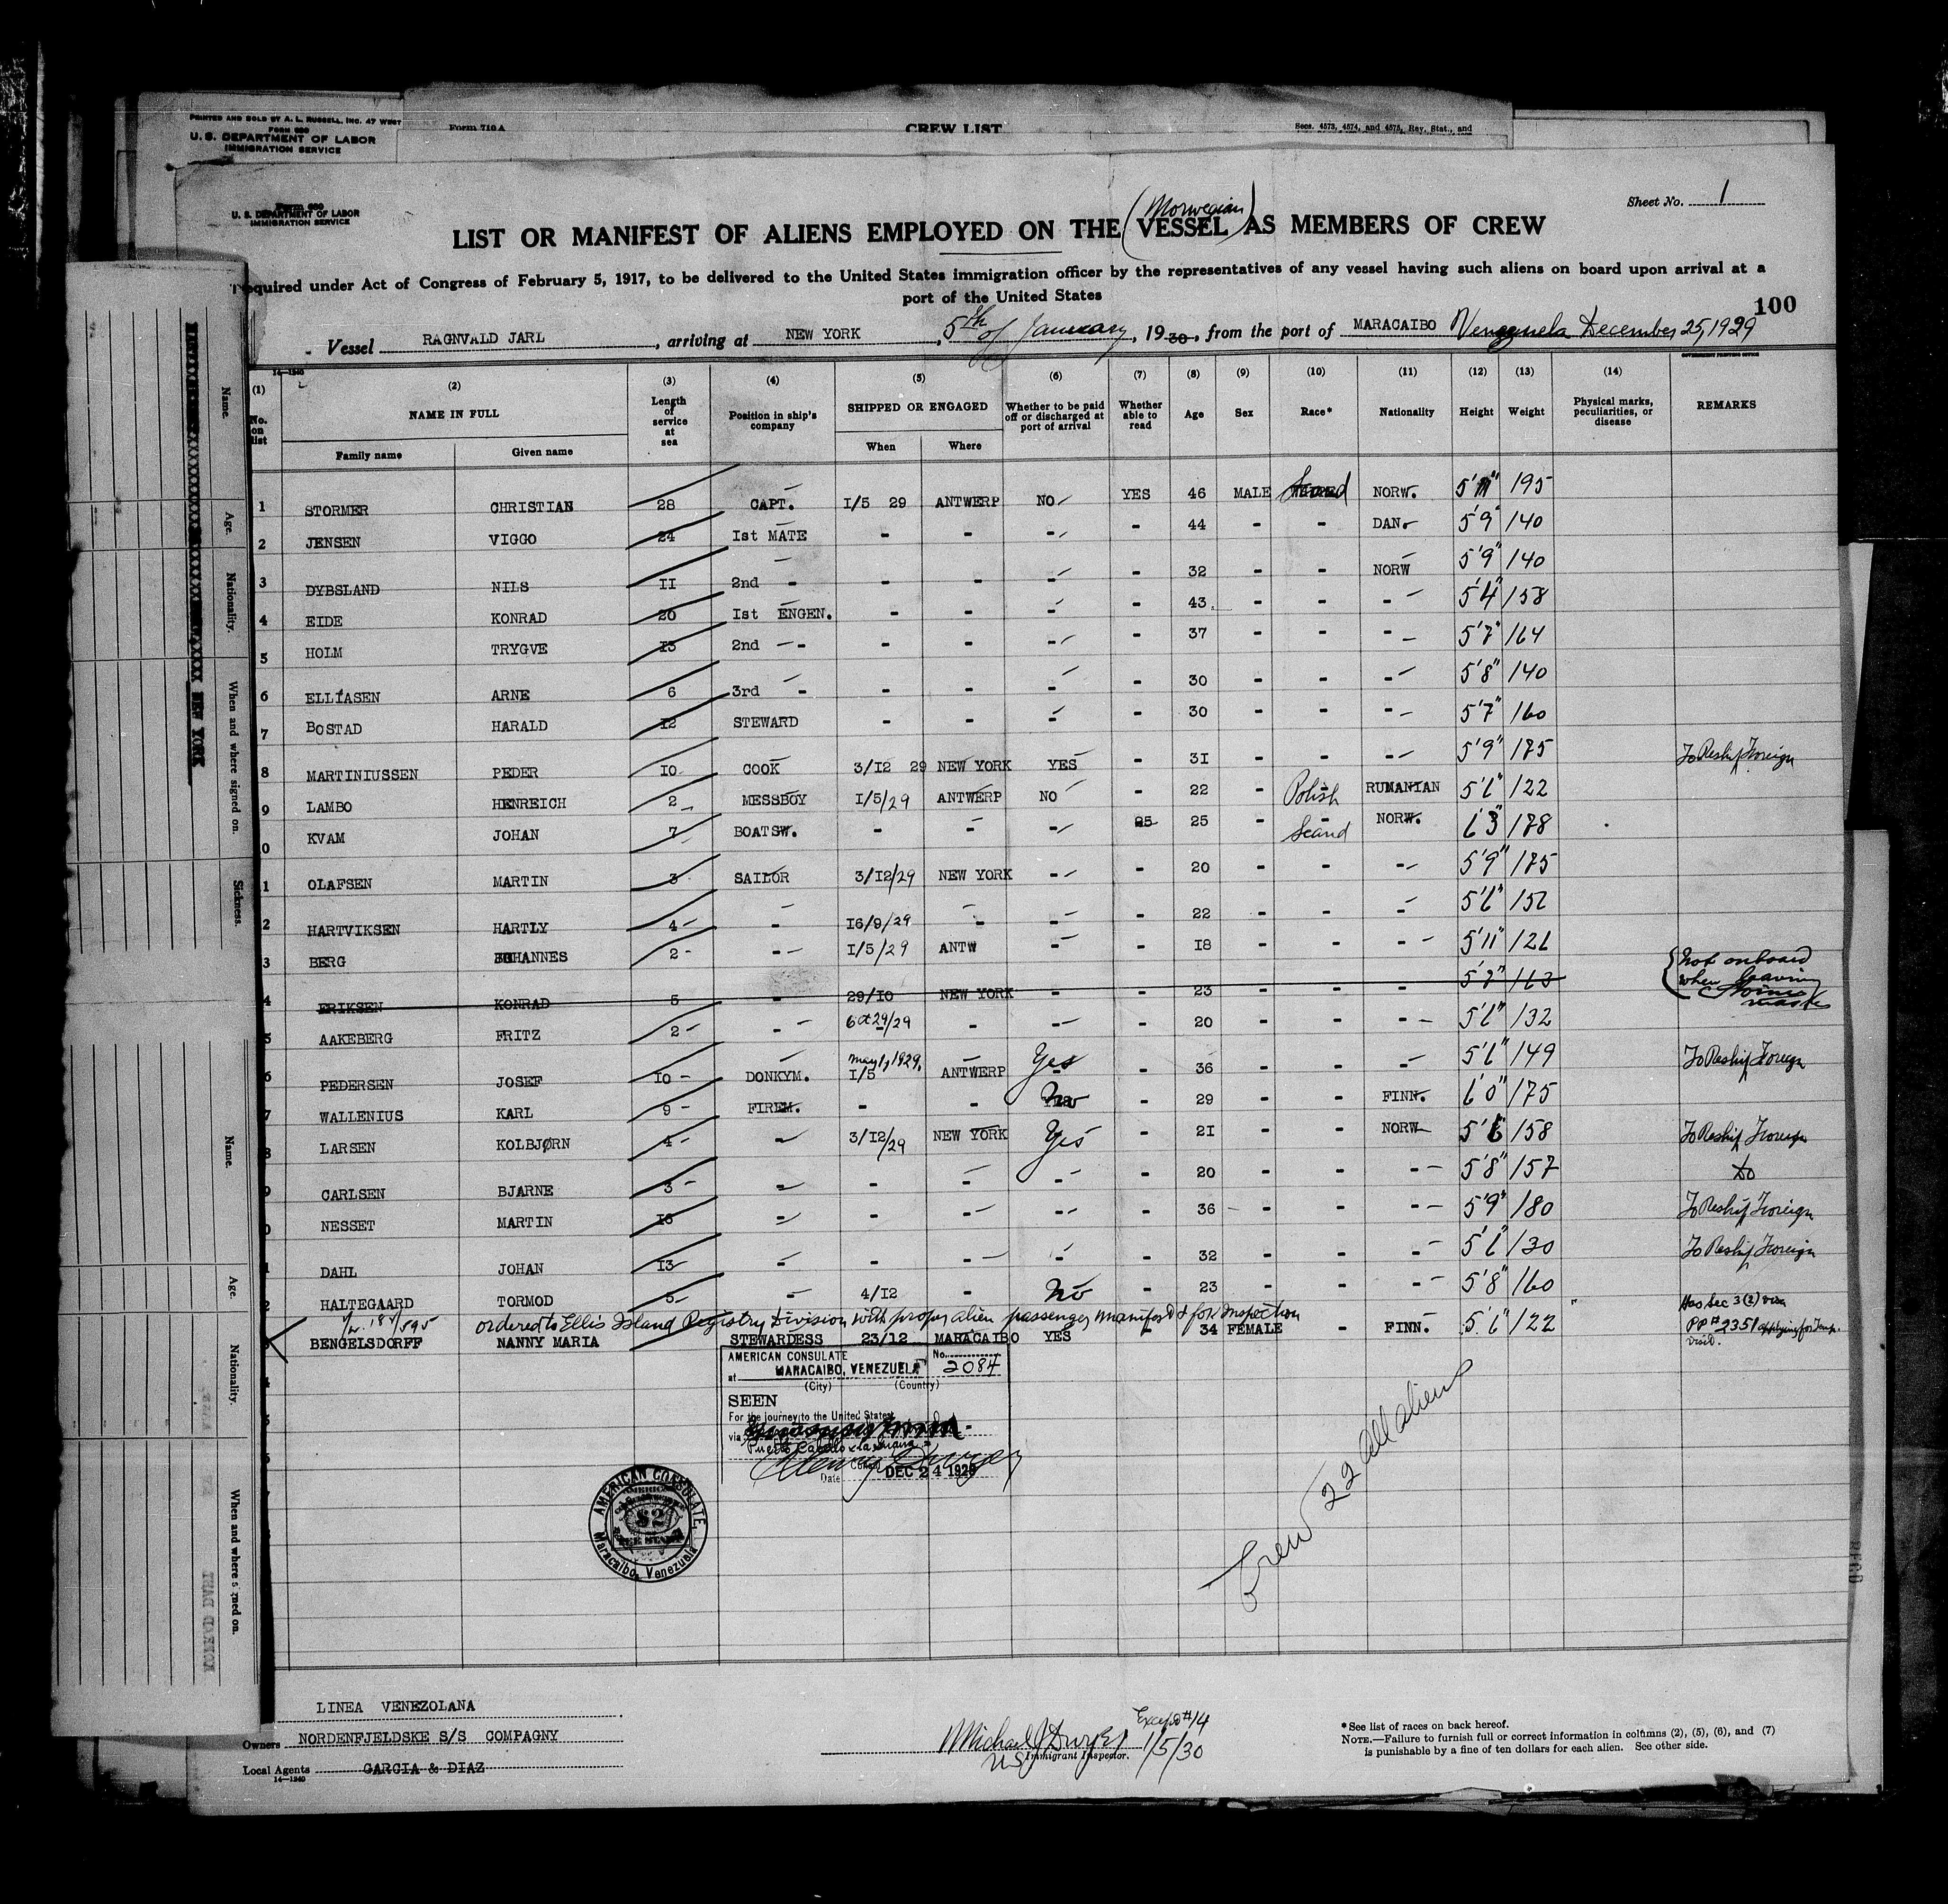 PRINTED AND SOLD BY A. L. RUSSELL, INC. 47 WEST
FORM 680
U. S. DEPARTMENT OF LABOR
IMMIGRATION SERVICE
Form 710 A
CREW LIST
Secs. 4573, 4574, and 4575, Rev. Stat., and
Form 680
U. S. DEPARTMENT OF LABOR
IMMIGRATION SERVICE
Sheet No. 1
(Norwegian)
LIST OR MANIFEST OF ALIENS EMPLOYED ON THE VESSEL AS MEMBERS OF CREW
Required under Act of Congress of February 5, 1917, to be delivered to the United States immigration officer by the representatives of any vessel having such aliens on board upon arrival at a
port of the United States
100
Vessel RAGNVALD JARL, arriving at NEW YORK, 5th of January, 1930, from the port of MARACAIBO Venezuela December 25, 1929
14—1240
GOVERNMENT PRINTING OFFICE
(1) (2) (3) (4) (5) (6) (7) (8) (9) (10) (11) (12) (13) (14)
No. on list NAME IN FULL Length of service at sea Position in ship's company SHIPPED OR ENGAGED Whether to be paid off or discharged at port of arrival Whether able to read Age Sex Race* Nationality Height Weight Physical marks, peculiarities, or disease REMARKS
Family name Given name When Where
1 STORMER CHRISTIAN 28 CAPT. 1/5 29 ANTWERP NO YES 46 MALE Scand NORW. 5'11" 195
2 JENSEN VIGGO 24 1st MATE - - - - 44 - - DAN. 5'9" 140
3 DYBSLAND NILS 11 2nd - - - - - 32 - - NORW 5'9" 140
4 EIDE KONRAD 20 1st ENGEN. - - - - 43 - - - 5'4" 158
5 HOLM TRYGVE 13 2nd - - - - - 37 - - - 5'7" 164
6 ELLIASEN ARNE 6 3rd - - - - - 30 - - - 5'8" 140
7 BOSTAD HARALD 12 STEWARD - - - - 30 - - - 5'7" 160
8 MARTINIUSSEN PEDER 10 COOK 3/12 29 NEW YORK YES - 31 - - - 5'9" 175 To Reship Foreign
9 LAMBO HENREICH 2 MESSBOY 1/5/29 ANTWERP NO - 22 - Polish RUMANIAN 5'6" 122
0 KVAM JOHAN 7 BOATSW. - - - 25 25 - - Scand NORW. 6'3" 178
1 OLAFSEN MARTIN 3 SAILOR 3/12/29 NEW YORK - - 20 - - - 5'9" 175
2 HARTVIKSEN HARTLY 4 - 16/9/29 - - - 22 - - - 5'6" 156
3 BERG JOHANNES 2 - 1/5/29 ANTW - - 18 - - - 5'11" 126
4 ERIKSEN KONRAD 5 - 29/10 NEW YORK - - 23 - - - 5'7" 163 Not onboard when leaving
5 AAKEBERG FRITZ 2 - 29/29 - - - 20 - - - 5'6" 132
6 PEDERSEN JOSEF 10 DONKYM. May 1, 1929. 1/5 ANTWERP Yes - 36 - - - 5'6" 149 To Reship Foreign
7 WALLENIUS KARL 9 FIREM. - - No - 29 - - FINN. 6'0" 175
8 LARSEN KOLBJØRN 4 - 3/12/29 NEW YORK Yes - 21 - - NORW 5'6" 158 To Reship Foreign
9 CARLSEN BJARNE 3 - - - - - 20 - - - 5'8" 157 do
0 NESSET MARTIN 13 - - - - - 36 - - - 5'9" 180 To Reship Foreign
1 DAHL JOHAN 13 - - - - - 32 - - - 5'6" 130 To Reship Foreign
2 HALTEGAARD TORMOD 5 - 4/12 - No - 23 - - - 5'8" 160
ordered to Ellis Island Registry Division with proper alien passenger manifest for inspection
BENGELSDORFF NANNY MARIA STEWARDESS 23/12 MARACAIBO YES - 34 FEMALE - FINN. 5'6" 122 Has Sec 3(2) visa PP# 2351 applying for Temp. visit.
AMERICAN CONSULATE No. 2084
at MARACAIBO, VENEZUELA
(City) (Country)
SEEN
For the journey to the United States
via
Puerto Cabello & La Guaira
Consul
Date DEC 24 1929
AMERICAN CONSULATE,
$2
FEE STAMP
Maracaibo, Venezuela
Crew 22 all aliens
LINEA VENEZOLANA
Owners NORDENFJELDSKE S/S COMPAGNY
Local Agents GARCIA & DIAZ
14—1240
Except #14
Michael J Dwyer 1/5/30
US Immigrant Inspector.
*See list of races on back hereof.
NOTE.—Failure to furnish full or correct information in columns (2), (5), (6), and (7)
is punishable by a fine of ten dollars for each alien. See other side.
NEW YORK
Name.
Age.
Nationality.
When and where signed on.
Sickness.
Name.
Age.
Nationality.
When and where signed on.